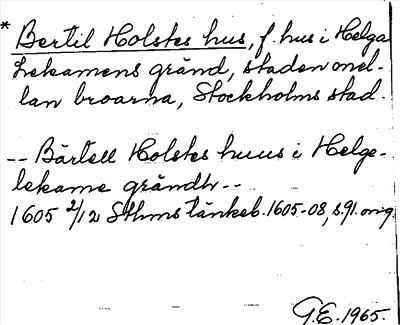 * Bertil Holstes hus, f. hus i Helga
Lekamens gränd, staden mel-
lan broarna, Stockholms stad.
-- Bärtell Holstes huus i Helge-
lekame grändh --
1605 2/12 Sthms tänkeb. 1605-08, s. 91. orig.
G.E. 1965.